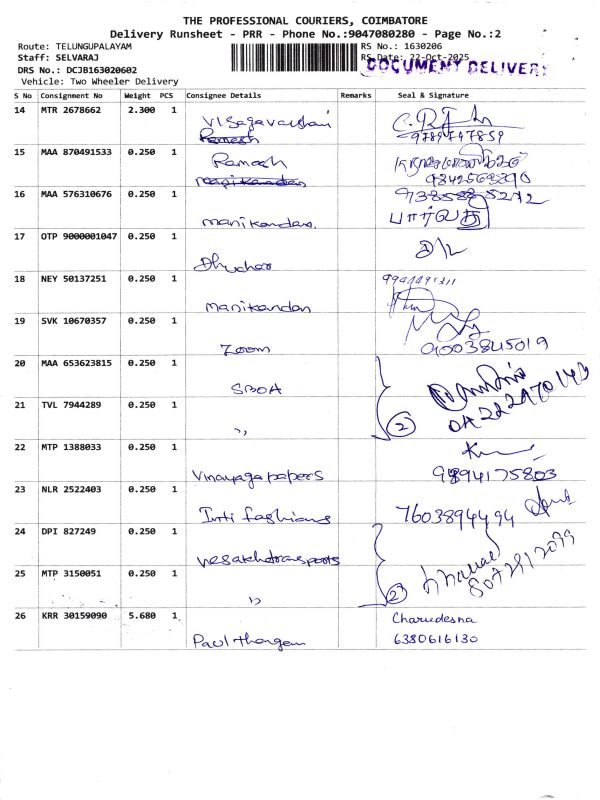 THE PROFESSIONAL COURIERS, COIMBATORE
Delivery Runsheet - PRR - Phone No.:9047080280 - Page No.:2
Route: TELUNGUPALAYAM RS No.: 1630206
Staff: SELVARAJ RS Date: 22-Oct-2025
DOCUMENT DELIVERY
DRS No.: DCJB163020602
Vehicle: Two Wheeler Delivery
S No Consignment No Weight PCS Consignee Details Remarks Seal & Signature
14 MTR 2678662 2.300 1
Ramesh 9789747859
15 MAA 870491533 0.250 1
Ramesh
manikandan 9842568890
16 MAA 576310676 0.250 1 9385885272
manikandan.
17 OTP 9000001047 0.250 1
18 NEY 50137251 0.250 1
manikandan
19 SVK 10670357 0.250 1
Zoom 9003845019
20 MAA 653623815 0.250 1
SBOA
21 TVL 7944289 0.250 1
,, 2
22 MTP 1388033 0.250 1
Vinayaga papers 9894175803
23 NLR 2522403 0.250 1
Inti fashions 7603894494
24 DPI 827249 0.250 1
25 MTP 3150051 0.250 1
,, 2
26 KRR 30159090 5.680 1 Charudesna
Paul thangam 6380616130